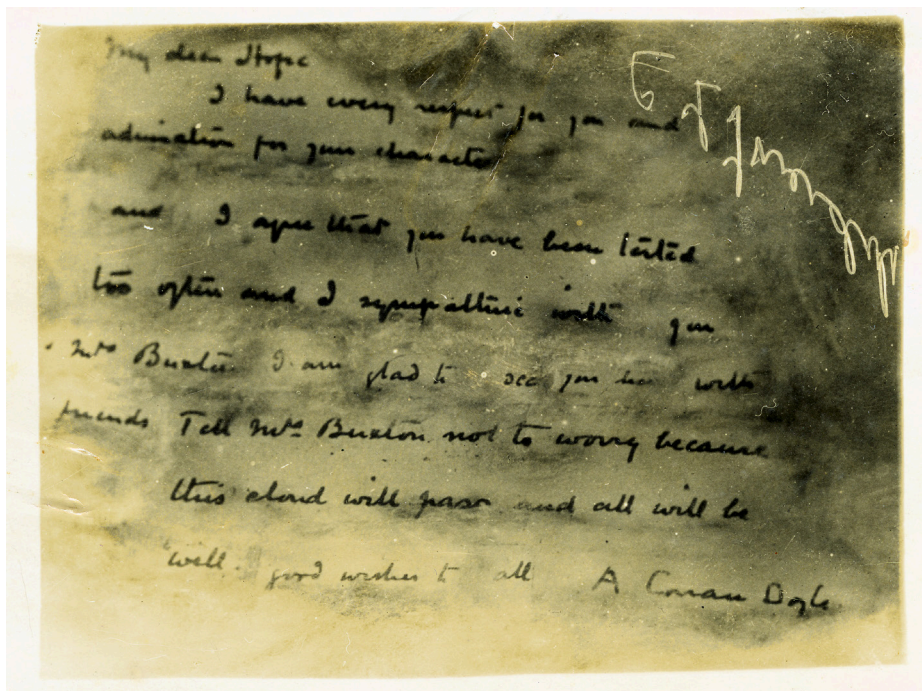 My dear Hope
I have every respect for you and
admiration for your character
and I agree that you have been tested
too often and I sympathise with you
Mrs Buxton I am glad to see you here with
friends Tell Mrs Buxton not to worry because
this cloud will pass and all will be
well. good wishes to all A Conan Doyle